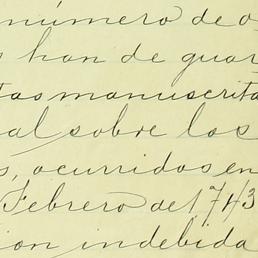 número de o
s han de guar
tas manuscrita
al sobre los
s, ocurridos en
Febrero de 1743
ion indebida